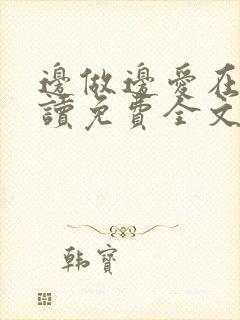 邊做邊愛在
讀免費全文
韩寶